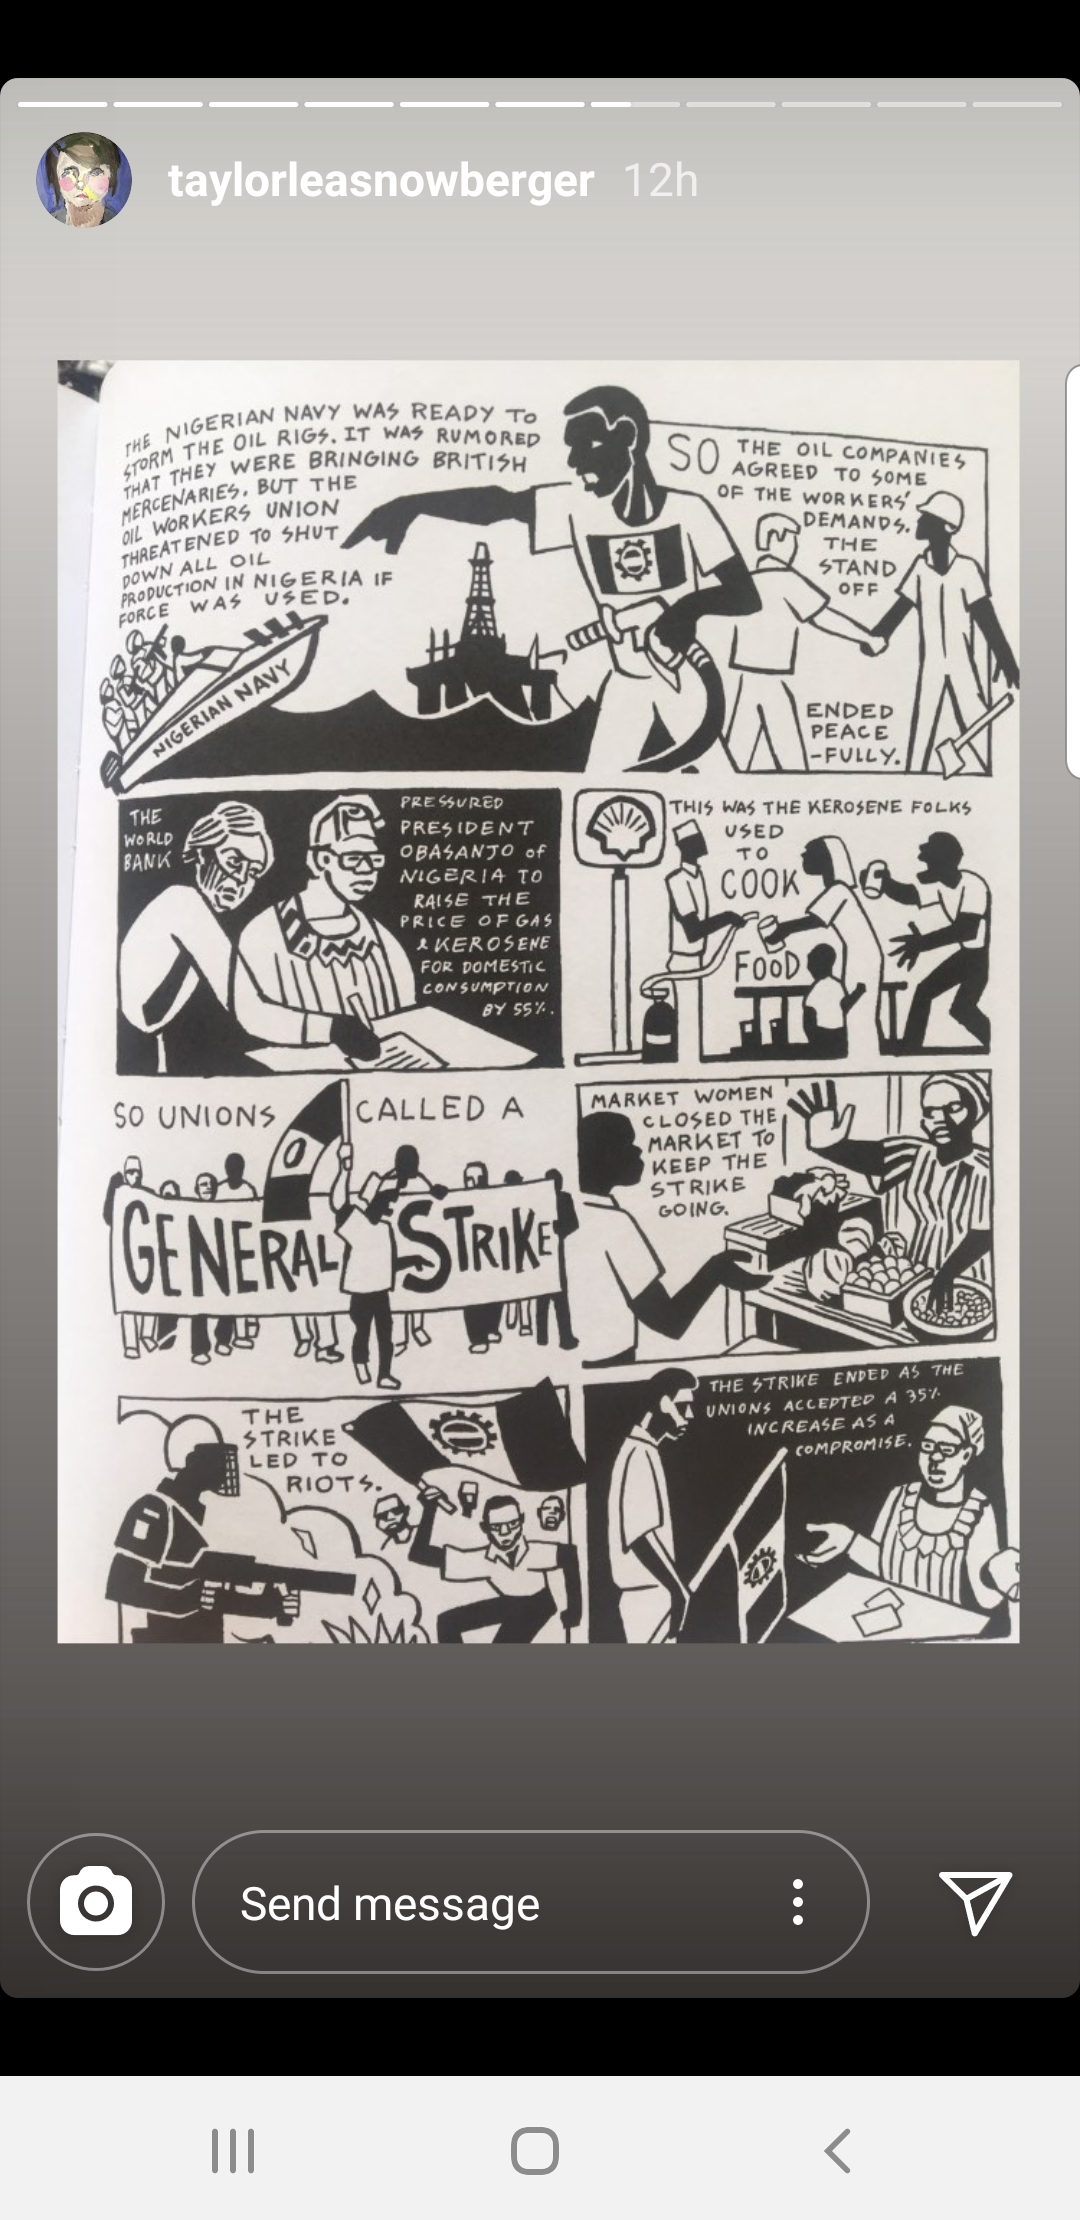 taylorleasnowberger 12h
THE NIGERIAN NAVY WAS READY TO
STORM THE OIL RIGS. IT WAS RUMORED
THAT THEY WERE BRINGING BRITISH
MERCENARIES. BUT THE
OIL WORKERS UNION
THREATENED TO SHUT
DOWN ALL OIL
PRODUCTION IN NIGERIA IF
FORCE WAS USED.
NIGERIAN NAVY
SO THE OIL COMPANIES
AGREED TO SOME
OF THE WORKERS'
DEMANDS.
THE
STAND
OFF
ENDED
PEACE
-FULLY.
THE
WORLD
BANK
PRESSURED
PRESIDENT
OBASANJO of
NIGERIA TO
RAISE THE
PRICE OF GAS
& KEROSENE
FOR DOMESTIC
CONSUMPTION
BY 55%.
THIS WAS THE KEROSENE FOLKS
USED
TO
COOK
FOOD
SO UNIONS CALLED A
GENERAL STRIKE
MARKET WOMEN
CLOSED THE
MARKET TO
KEEP THE
STRIKE
GOING.
THE
STRIKE
LED TO
RIOTS.
THE STRIKE ENDED AS THE
UNIONS ACCEPTED A 35%
INCREASE AS A
COMPROMISE.
Send message